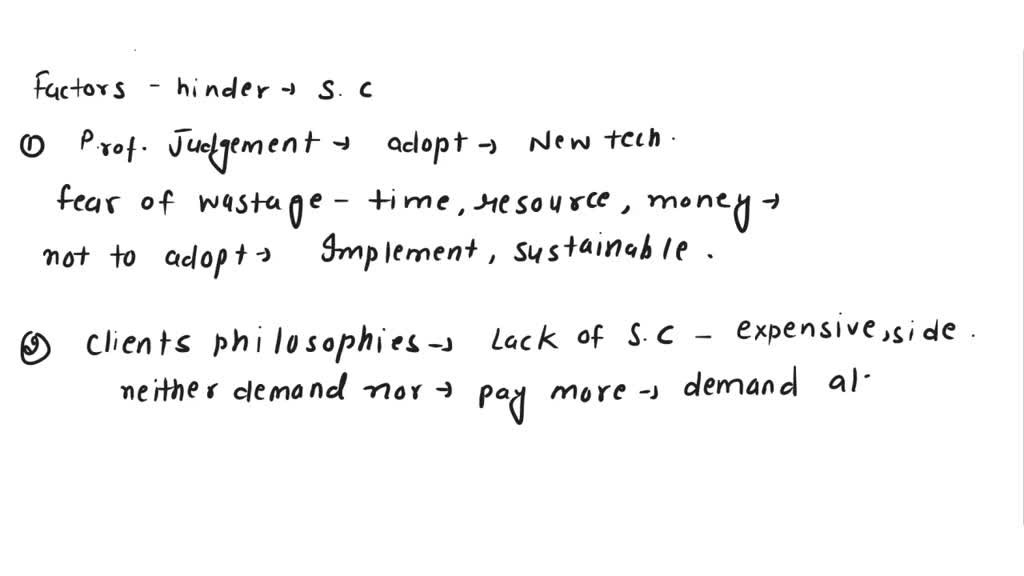 Factors - hinder → S. C
① Prof. Judgement → adopt → New tech.
fear of wastage - time, resource, money →
not to adopt → Implement, sustainable.
② Clients philosophies → Lack of S.C - expensive, side.
neither demand nor → pay more → demand al.